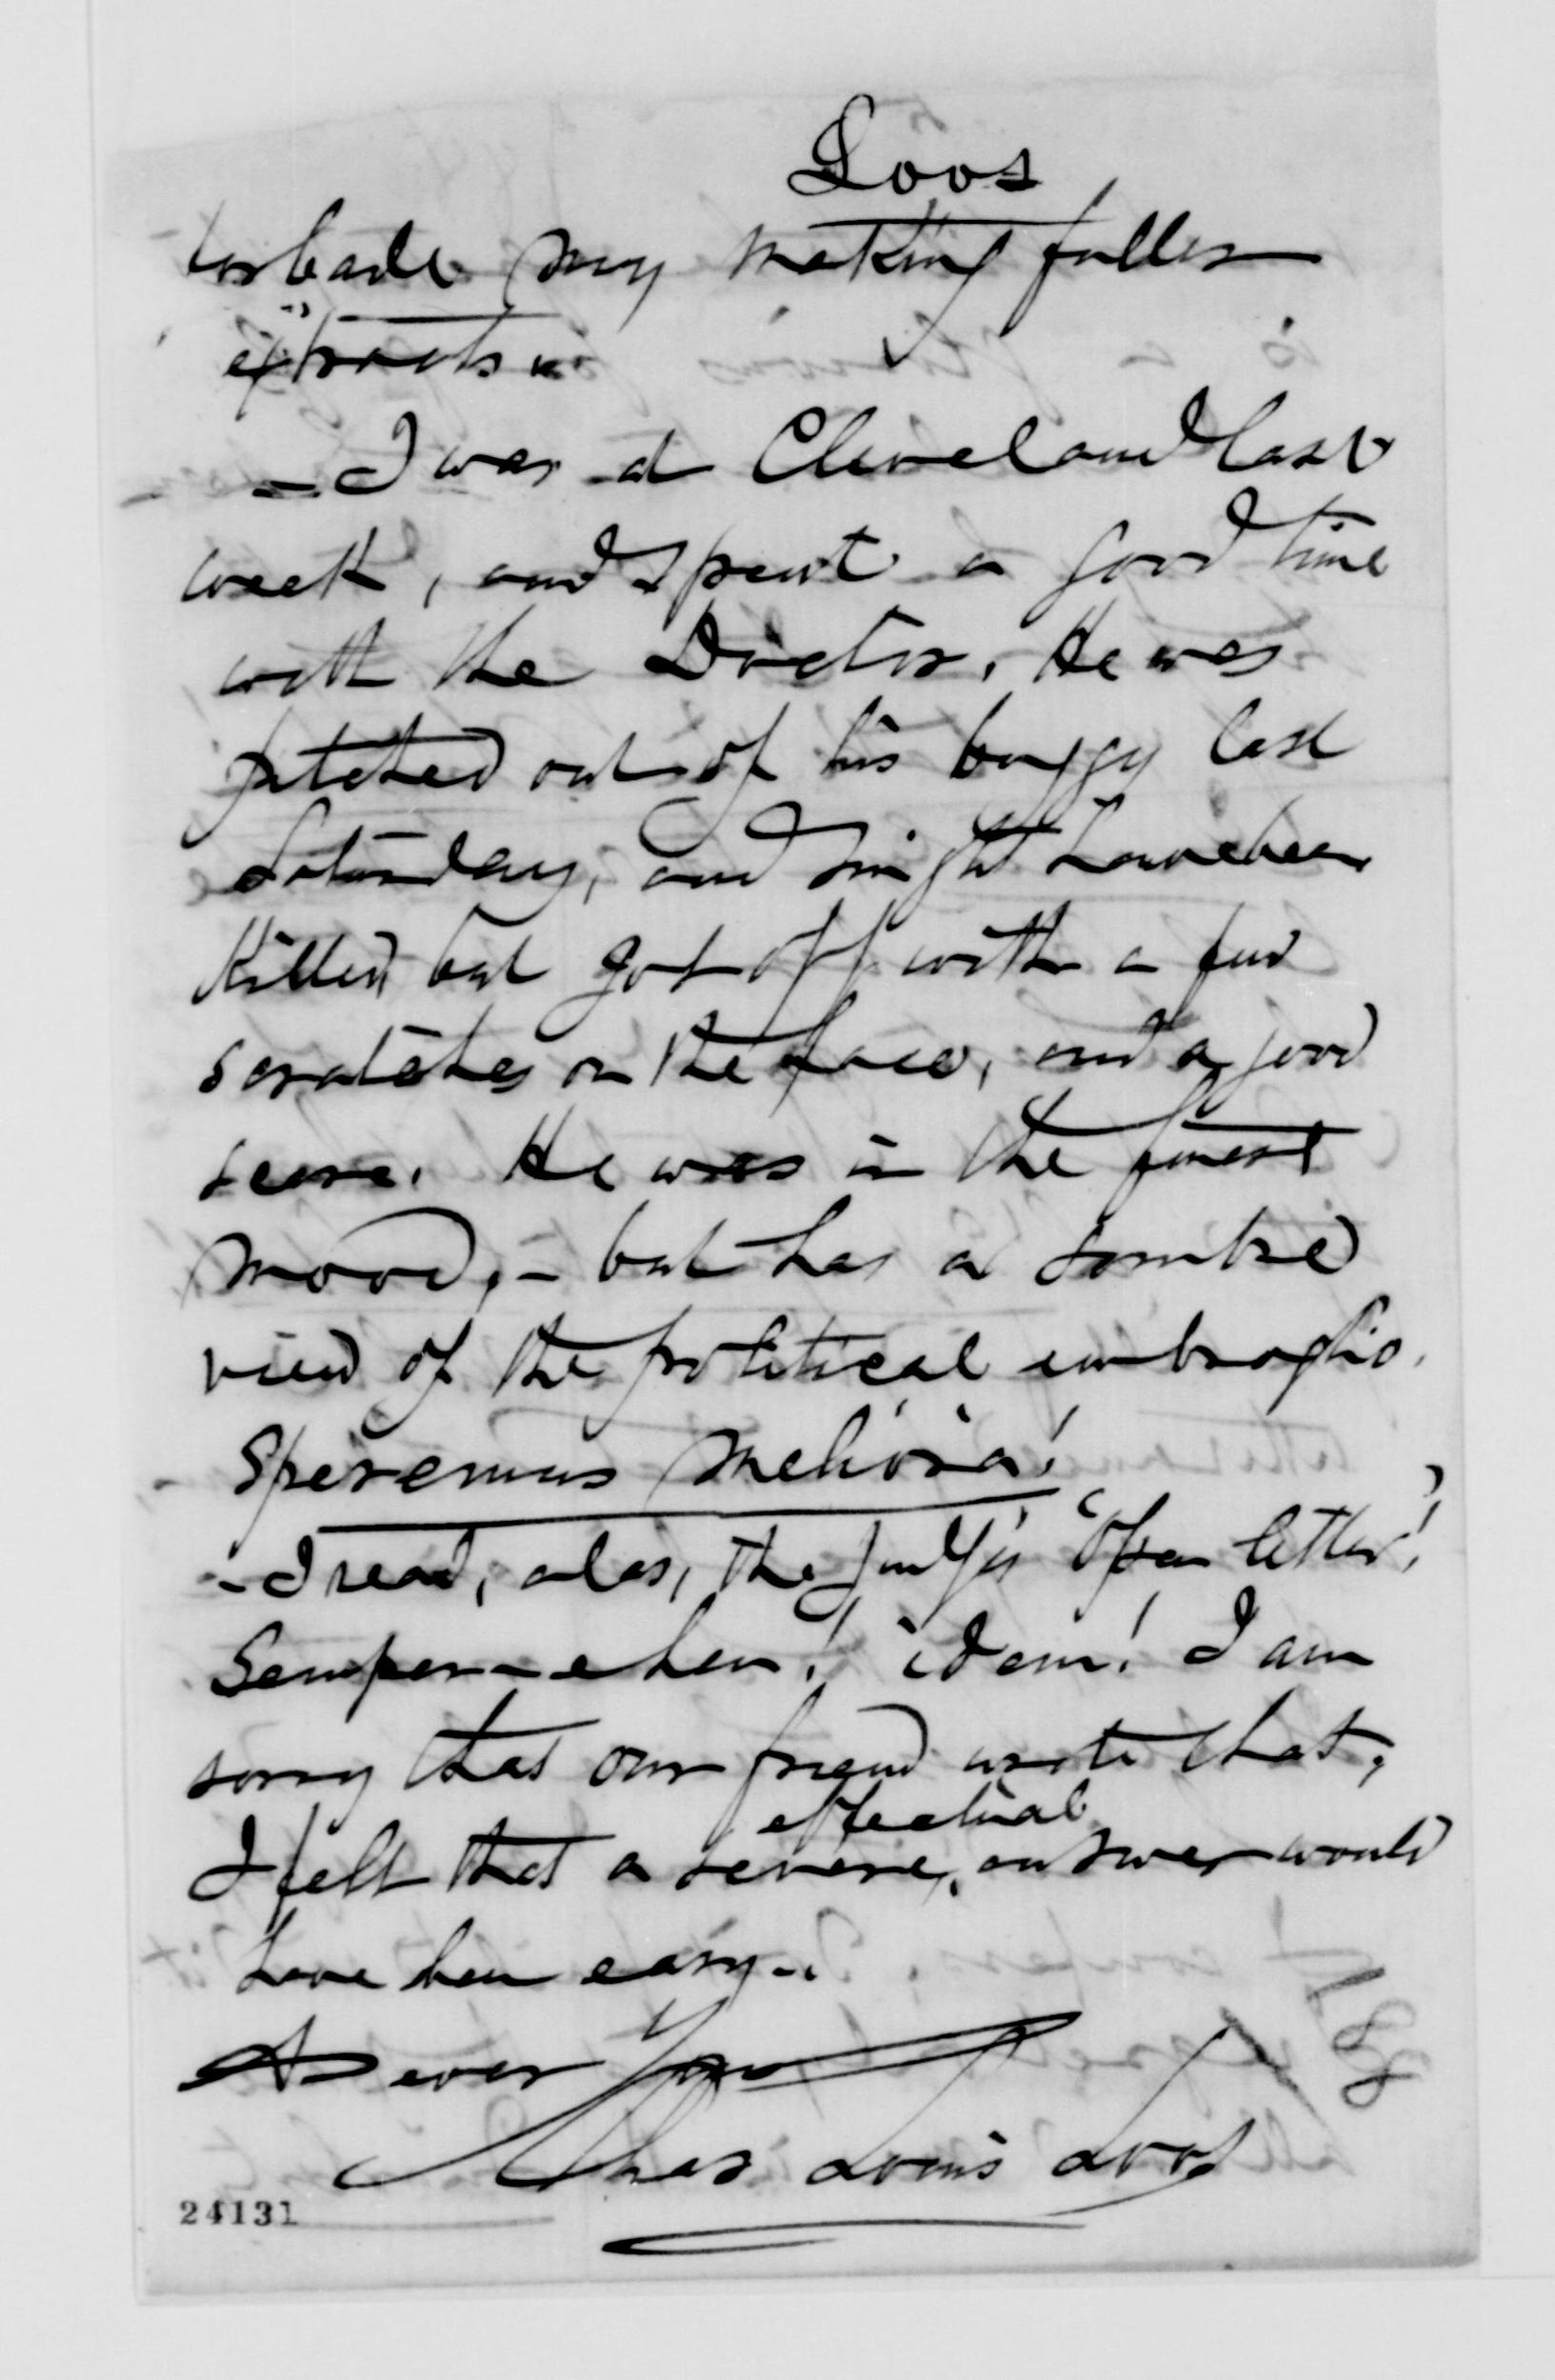 Loos
forbade my making fuller
extracts.
- I was at Cleveland last
week, and spent a good time
with the Doctor. He was
pitched out of his buggy last
Saturday, and might have been
killed but got off with a few
scratches on the face, and a good
scare. He was in the finest
mood, - but has a sombre
view of the political imbroglio.
Speremus meliora!
- I read, alas, the Judge's "Open letter"!
Semper - eheu! idem! I am
sorry that our friend wrote that;
effectual
I felt that a severe, answer would
have been easy.
As ever Yours
Chas Louis Loos
24131